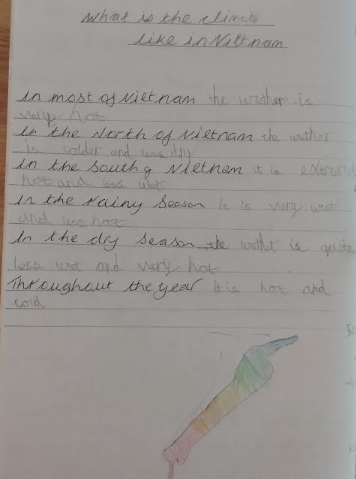 What is the climate
like in Vietnam
In most of Vietnam the wether is
very hot
In the North of Vietnam the wether
is colder and less dry
In the South of Vietnam it is
hot and less wet
In the Rainy Season it is very wet
and less hot
In the dry Season the wether is quite
less wet and very hot
Throughout the year it is hot and
cold